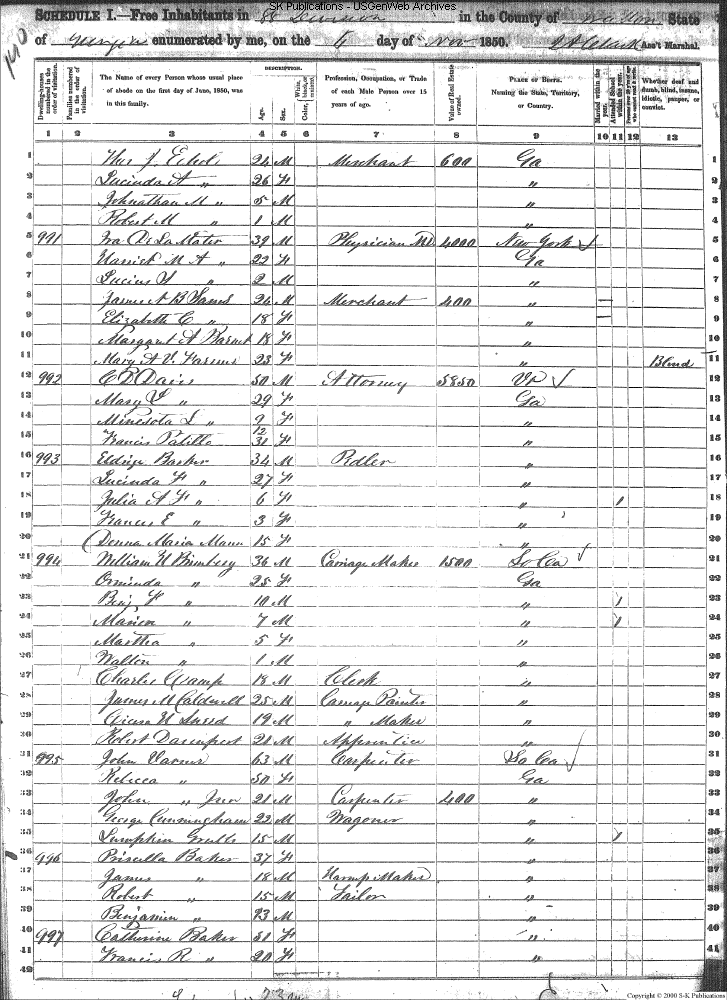 SK Publications - USGenWeb Archives
SCHEDULE I.—Free Inhabitants in 88 Division in the County of Walton State
of Georgia enumerated by me, on the 6 day of Nov 1850. Ass't Marshal.
Dwelling-houses numbered in the order of visitation.
Families numbered in the order of visitation.
The Name of every Person whose usual place of abode on the first day of June, 1850, was in this family.
DESCRIPTION.
Age.
Sex.
Color, White, black, or mulatto.
Profession, Occupation, or Trade of each Male Person over 15 years of age.
Value of Real Estate owned.
PLACE OF BIRTH. Naming the State, Territory, or Country.
Married within the year.
Attended School within the year.
Persons over 20 y'rs of age who cannot read & write.
Whether deaf and dumb, blind, insane, idiotic, pauper, or convict.
1 2 3 4 5 6 7 8 9 10 11 12 13
1 24 M Merchant 600 Ga 1
2 Lucinda A " 26 F " 2
3 Johnathan M " 5 M " 3
4 Robert M " 1 M " 4
5 991 Ira De La Mater 39 M Physician MD 4000 New York 5
6 M A " 22 F Ga 6
7 Lucius " 2 M " 7
8 James A B Sams 24 M Merchant 400 " 8
9 Elizabeth C " 18 F " 9
10 Margaret A 18 F " 10
11 Mary A V 23 F " Blind 11
12 992 Davis 50 M Attorney 5850 Va 12
13 Mary " 29 F Ga 13
14 Minesota " 9 F " 14
15 Francis Patillo 31 F " 15
16 993 Barker 34 M Pedler " 16
17 Lucinda F " 27 F " 17
18 Julia A F " 6 F " 1 18
19 Frances E " 3 F " 19
20 Maria Mann 15 F " 20
21 994 William 36 M Carriage Maker 1500 So Ca 21
22 " 25 F Ga 22
23 Benj F " 10 M " 1 23
24 Marion " 7 M " 1 24
25 Martha " 5 F " 25
26 Walton " 1 M " 26
27 Charles Camp 18 M Clerk " 27
28 James M Caldwell 25 M Carriage Painter " 28
29 19 M " Maker " 29
30 Robert Davenport 21 M Apprentice " 30
31 995 John 63 M Carpenter So Ca 31
32 Rebecca " 50 F Ga 32
33 John " Junr 21 M Carpenter 400 " 33
34 George Cunningham 22 M Wagoner " 34
35 Lumpkin 15 M " 1 35
36 996 Priscilla Baker 37 F " 36
37 James " 18 M Harness Maker " 37
38 Robert " 15 M Tailor " 38
39 Benjamin " 13 M " 39
40 997 Catherine Baker 51 F " 40
41 Francis R " 20 F " 41
42
Copyright © 2000 S-K Publications